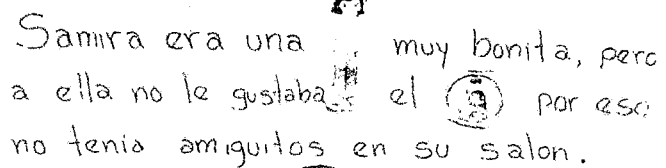 Samira era una muy bonita, pero
a ella no le gustaba el por eso
no tenia amiguitos en su salon.